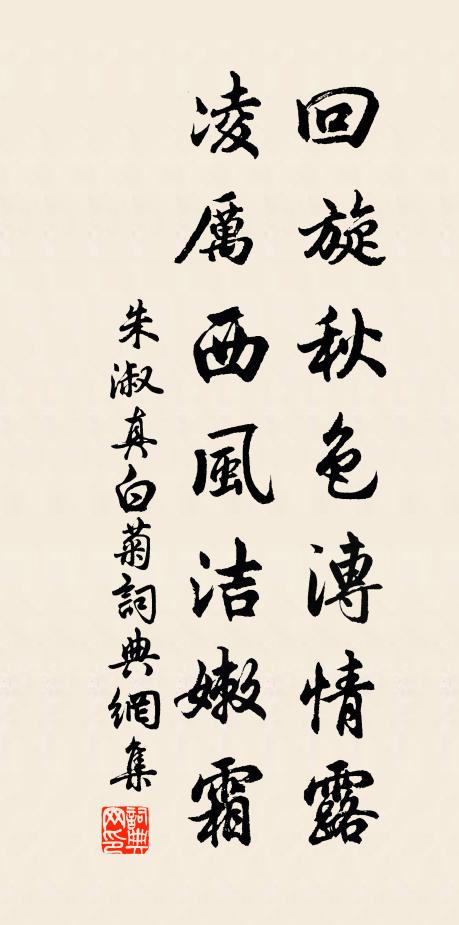 回旋秋色漙情露
凌厲西風洁嫩霜
朱淑真白菊詞典網集
詞典網印